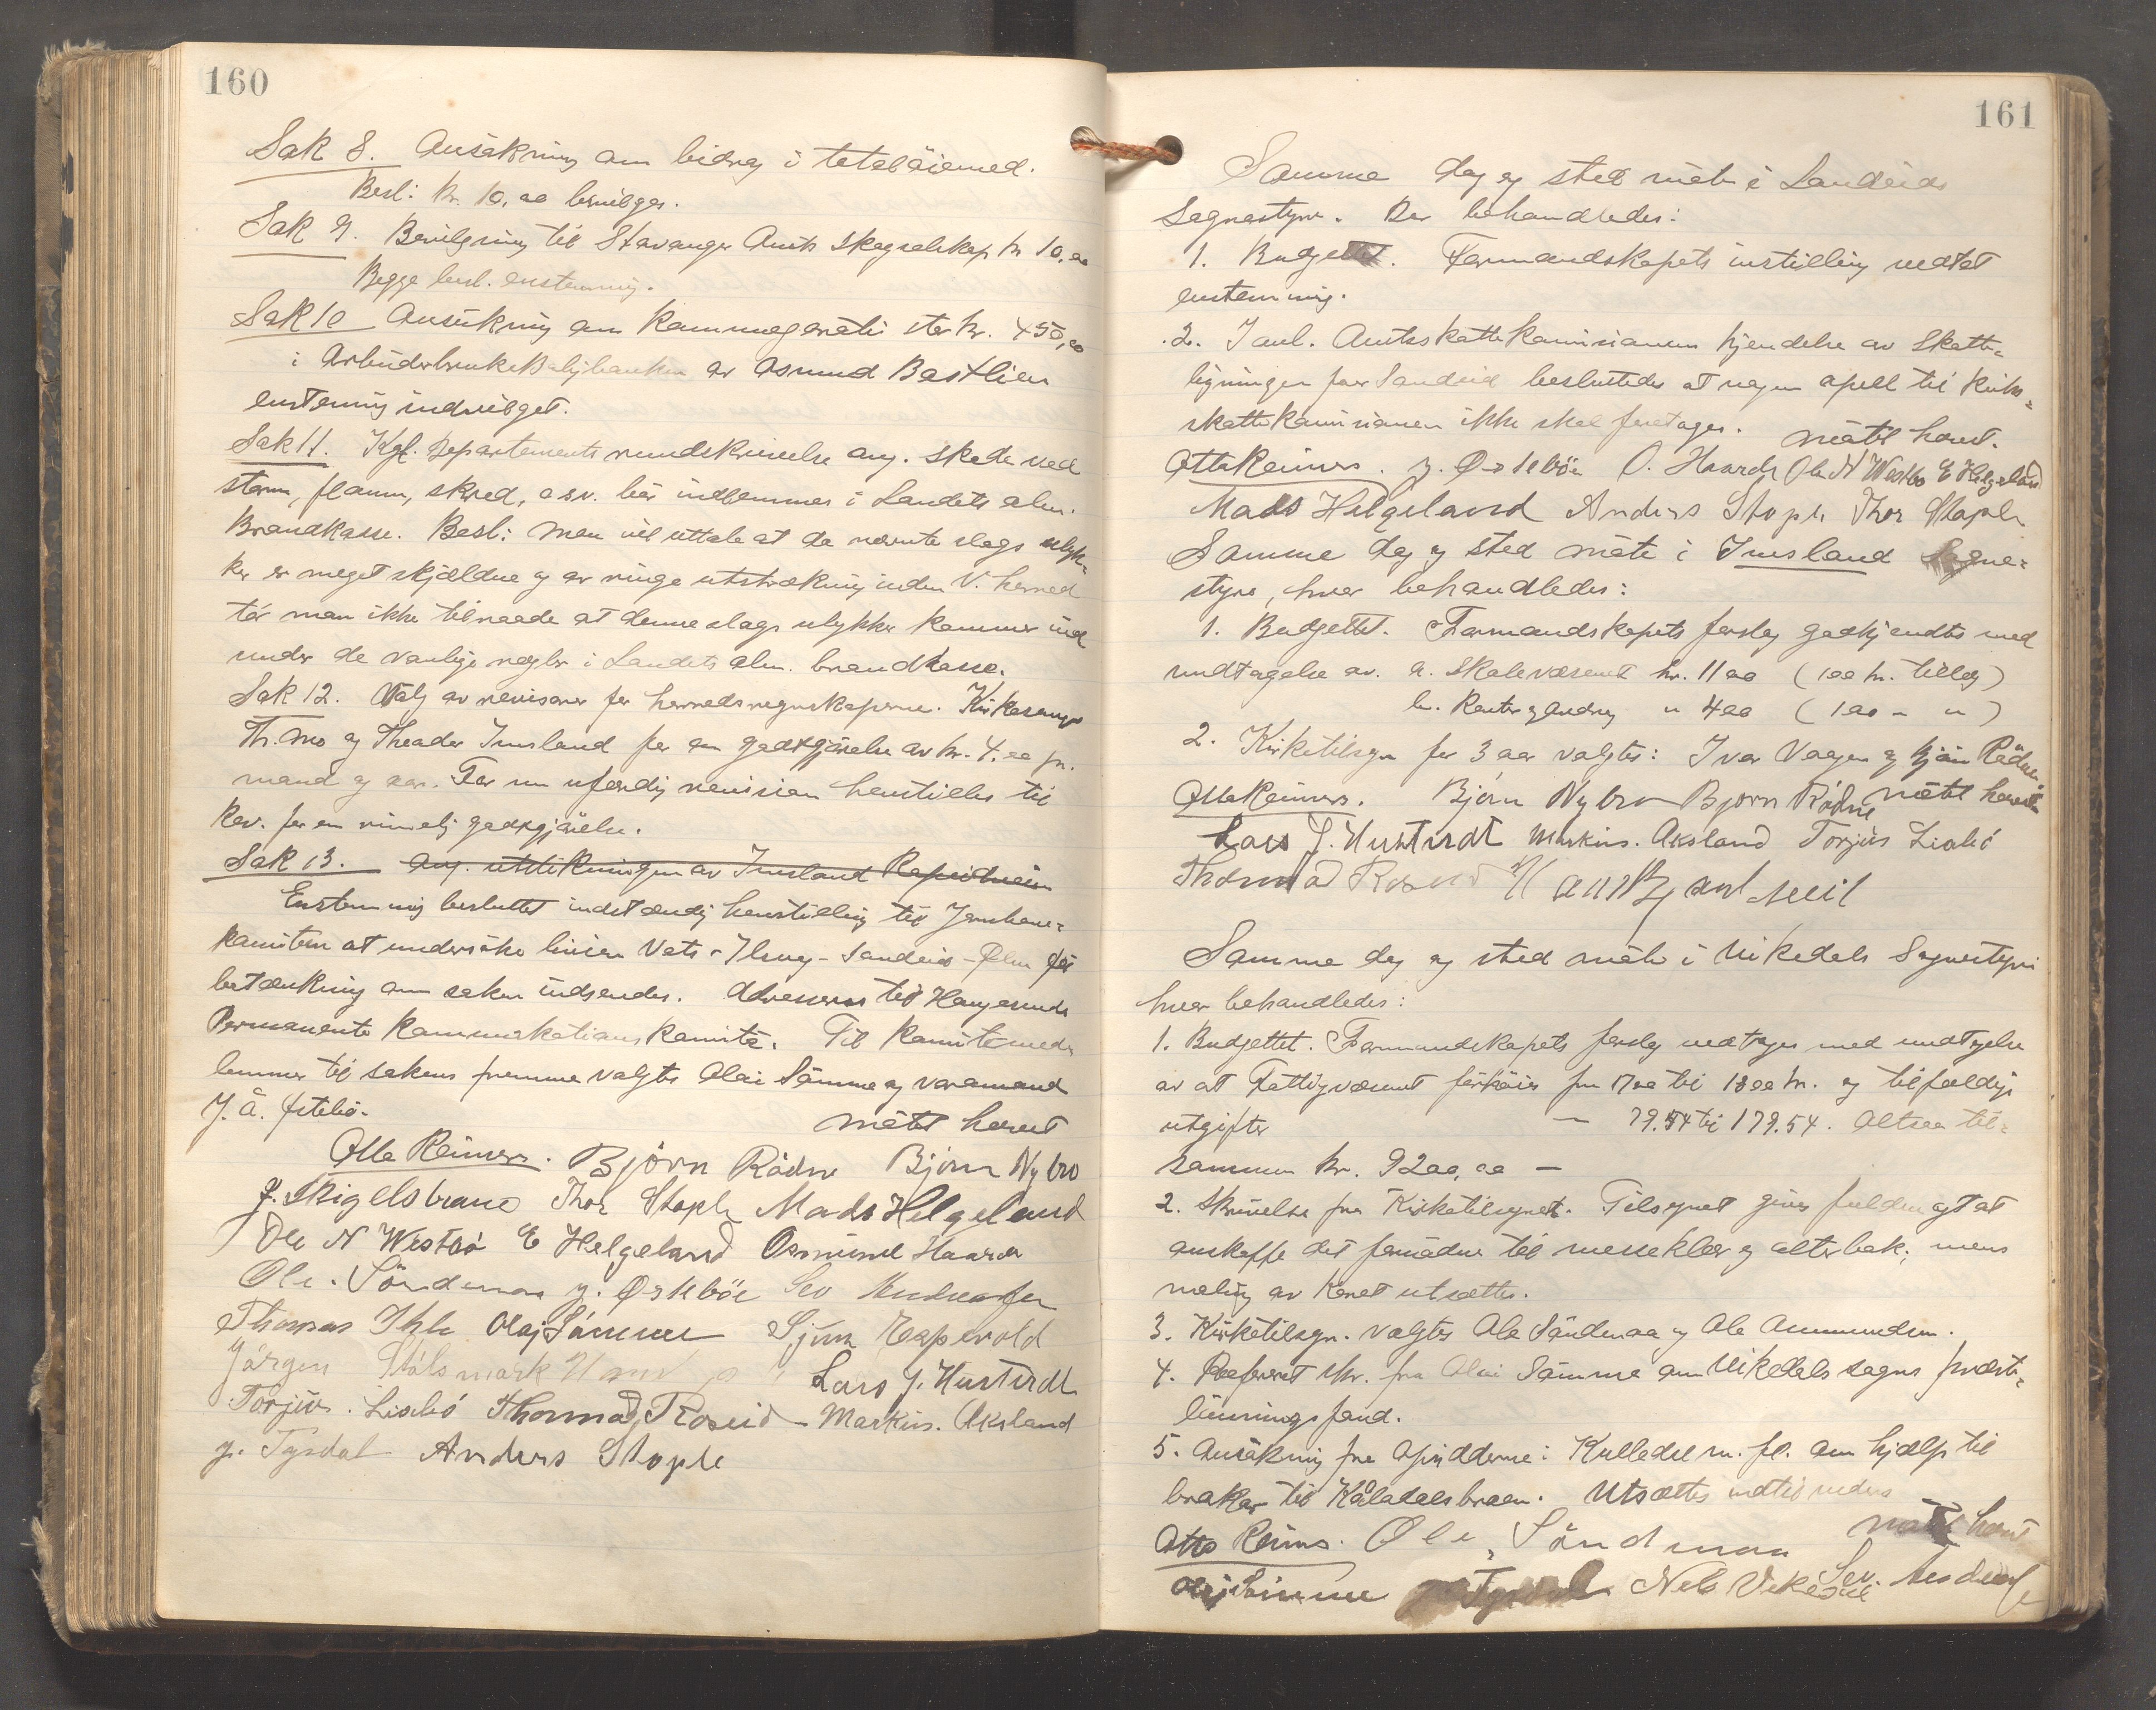 160
Sak 8. Ansökning om bidrag i totaløiemed.
Besl: kr. 10,00 bevilges.
Sak 9. Bevilgning til Stavanger Amts skogselskap kr 10,00
Begge besl. enstemmig.
Sak 10 Ansökning om kommunegaranti stor kr. 450,00
i Arbeiderbruk & Boligbanken av Asmund Bastlien
enstemmig indvilget.
Sak 11. Kgl. Departements rundskrivelse ang. skade ved
storm, flaum, skred, o.s.v. bör indlemmes i Landets alm.
Brandkasse. Besl: Man vil uttale at da nævnte slags ulyk-
ker er meget skjeldne og av ringe utstrækning inden V. herred
tör man ikke tilraade at denne slags ulykker kommer ind
under de vanlige regler i Landets alm. brandkasse.
Sak 12. Valg av revisorer for herredsregnskaperne. Kirkesanger
Th. Mo og Theodor Imsland for en godtgjörelse av kr. 4.00 pr.
mand og aar. For en uferdig revision henstilles til
Rev. for en rimelig godtgjörelse.
Sak 13. ang. utstikningen av Imsland
Enstemmig besluttet indstændig henstilling til Jernbane-
komiteen at undersöke linien Vats - Ilsvåg - Sandeid - Ølen för
betænkning om saken indsendes. Adresseres til Haugesunds
Permanente Kommunikations Komite. Til Komitemed-
lemmer til sakens fremme valgtes Olai Sömme og varamand
J. Ö.
mötet hævet
Otto Reimers. Björn Rödne Björn Nybro
J. Skigelstrand Thor Stople Mads Helgeland
Ole N Westbö E Helgeland Osmund Haarde
Ole. Söndenaa J. Östebön Sev Andersen
Thomas Ihle Olaj Sömme Sjur Espevold
Jörgen Stölsmark Lars J. Hustvedt
Torjus. Liabö Thormod Roseid Markus. Aksland
J. Tysdal Anders Stople
161
Samme dag og sted möte i Sandeids
Sognestyre. Der behandledes:
1. Budgettet. Formandskapets instilling vedtat
enstemmig.
2. I anl. Amtsskattekommisionens kjendelse av Skatte-
ligningen for Sandeid besluttedes at nogen apell til Riks-
skattekommisionen ikke skal foretages. mötet hævet.
Otto Reimers. J. Östebön O. Haarde Ole N Westbö E Helgeland
Mads Helgeland Anders Stople Thor Stople
Samme dag og sted möte i Imsland Sogne-
styre, hvor behandledes:
1. Budgettet. Formandskapets forslag godkjendtes med
undtagelse av. a. Skolevæsenet kr. 1100 (100 kr. tillæg)
b. Renter og Avdrag " 400 (100 - ")
2. Kirketilsyn for 3 aar valgtes: Ivar Vaagen og Björn Rödne
mötet hævet
Otto Reimers. Björn Nybro Björn Rödne
Lars J. Hustvedt Markus. Aksland Torjus Liabö
Thormod Roseid
Samme dag og sted möte i Vikedals Sognestyre
hvor behandledes:
1. Budgettet. Formandskapets forslag vedtages med undtagelse
av at Fattigvæsenet forhöies fra 1700 til 1800 kr. og tilfældige
utgifter — 79.54 til 179.54. Altsaa til-
sammen kr. 9200,00 —
2. Skrivelse fra Kirketilsynet. Tilsynet gives fuldmagt at
anskaffe det fornödne til messeklær og alterbok, mens
maling av koret utsættes.
3. Kirketilsyn. valgtes Ole Söndenaa og Ole Ammundsen.
4. Refereret skr. fra Olai Sömme om Vikedals sogns præste-
lönningsfond.
5. Ansökning fra opsidderne i Kulledal m. fl. om hjælp til
broker til Kåladalsbroen. Utsættes indtil videre
mötet hævet
Otto Reimers. Ole. Söndenaa
Olaj Sömme J Tysdal Nels Vikedal Sev. Andersen